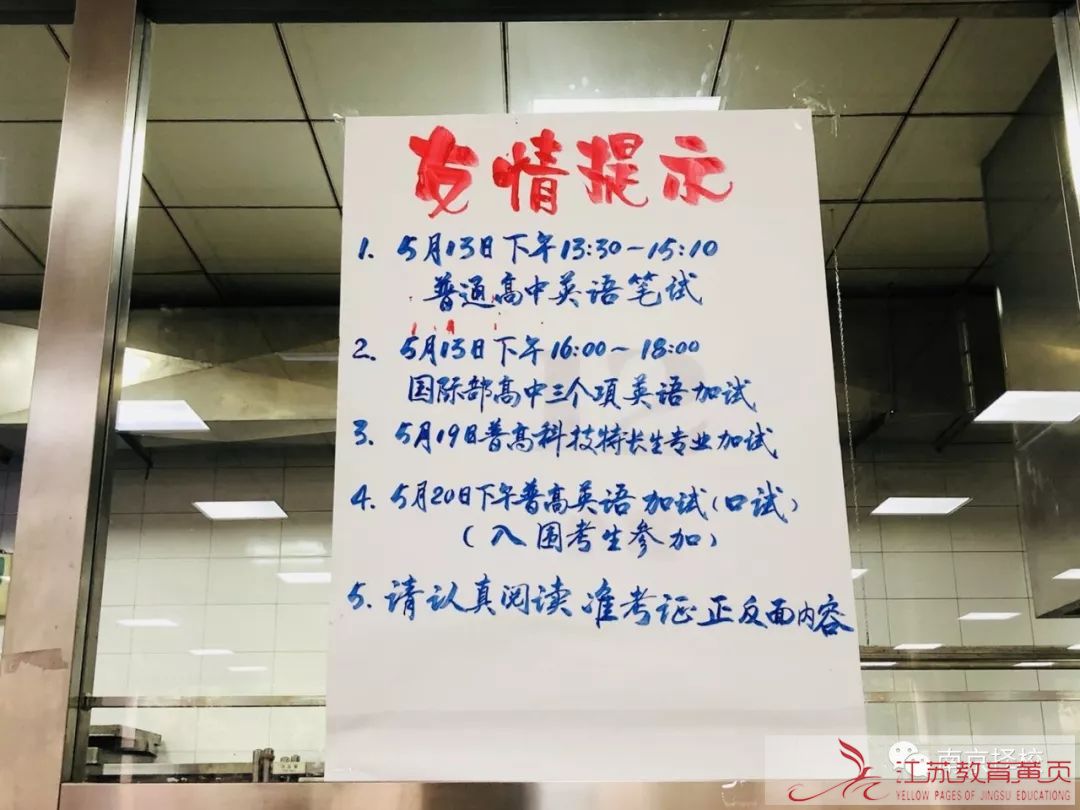 友情提示
1. 5月13日下午13:30~15:10
普通高中英语笔试
2. 5月13日下午16:00~18:00
国际部高中三个项英语加试
3. 5月19日普高科技特长生专业加试
4. 5月20日下午普高英语加试(口试)
(入围考生参加)
5. 请认真阅读准考证正反面内容
南京择校
江苏教育黄页
YELLOW PAGES OF JINGSU EDUCATIONG